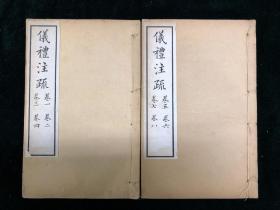 儀禮注疏
卷一 卷二
卷三 卷四
儀禮注疏
卷五 卷六
卷七 卷八